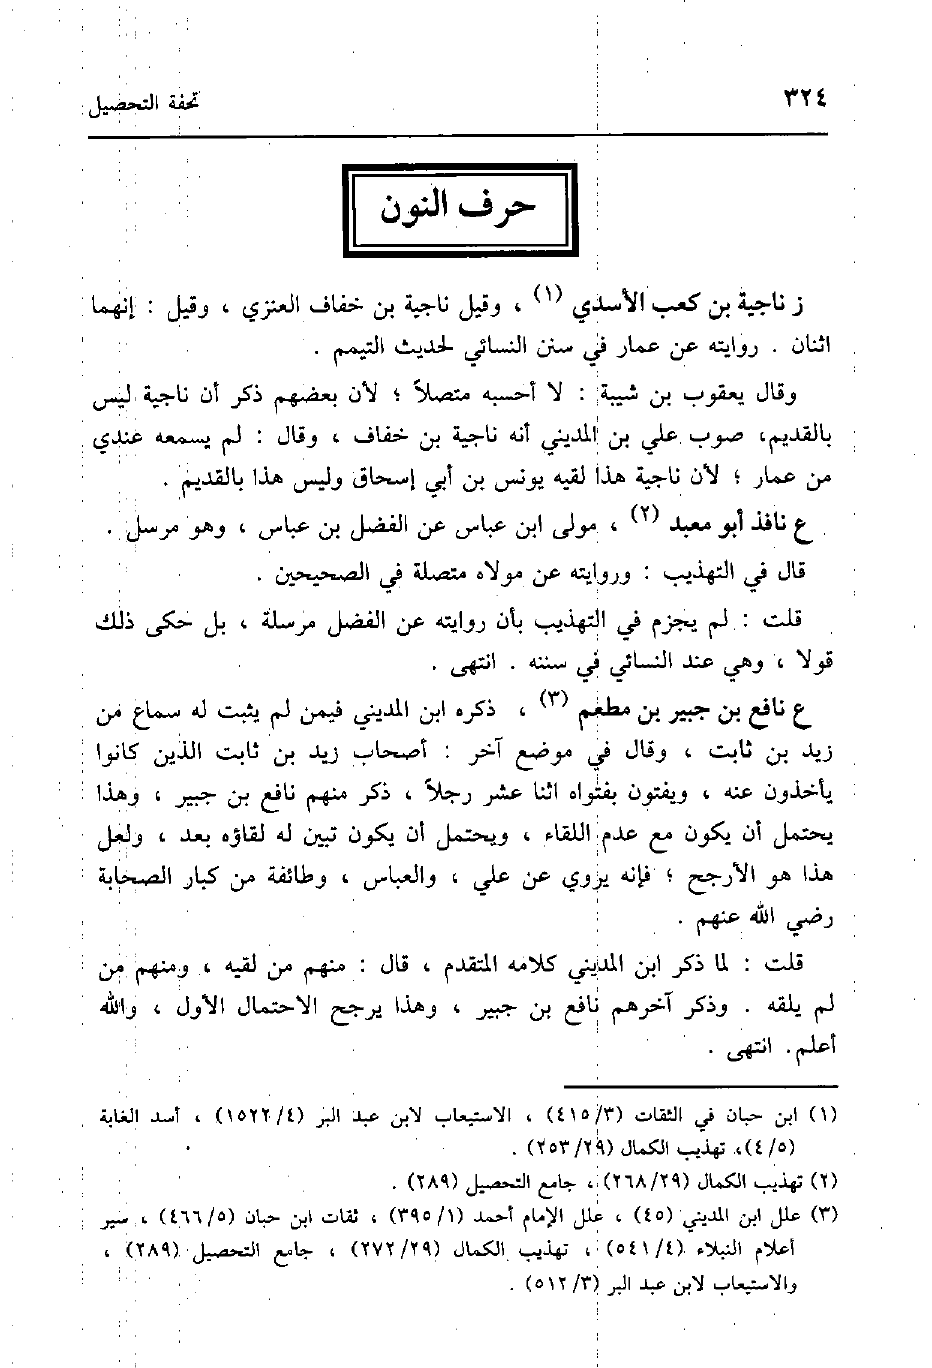 ٣٢٤
تحفة التحصيل
حرف النون
ز ناجية بن كعب الأسدي (١) ، وقيل ناجية بن خفاف العنزي ، وقيل : إنهما
اثنان . روايته عن عمار في سنن النسائي لحديث التيمم .
وقال يعقوب بن شيبة : لا أحسبه متصلاً ؛ لأن بعضهم ذكر أن ناجية ليس
بالقديم، صوب علي بن المديني أنه ناجية بن خفاف ، وقال : لم يسمعه عندي
من عمار ؛ لأن ناجية هذا لقيه يونس بن أبي إسحاق وليس هذا بالقديم .
ع نافذ أبو معبد (٢) ، مولى ابن عباس عن الفضل بن عباس ، وهو مرسل .
قال في التهذيب : وروايته عن مولاه متصلة في الصحيحين .
قلت : لم يجزم في التهذيب بأن روايته عن الفضل مرسلة ، بل حكى ذلك
قولا ، وهي عند النسائي في سننه . انتهى .
ع نافع بن جبير بن مطعم (٣) ، ذكره ابن المديني فيمن لم يثبت له سماع من
زيد بن ثابت ، وقال في موضع آخر : أصحاب زيد بن ثابت الذين كانوا
يأخذون عنه ، ويفتون بفتواه اثنا عشر رجلاً ، ذكر منهم نافع بن جبير ، وهذا
يحتمل أن يكون مع عدم اللقاء ، ويحتمل أن يكون تبين له لقاؤه بعد ، ولعل
هذا هو الأرجح ؛ فإنه يروي عن علي ، والعباس ، وطائفة من كبار الصحابة
رضي الله عنهم .
قلت : لما ذكر ابن المديني كلامه المتقدم ، قال : منهم من لقيه ، ومنهم من
لم يلقه . وذكر آخرهم نافع بن جبير ، وهذا يرجح الاحتمال الأول ، والله
أعلم. انتهى .
(١) ابن حبان في الثقات (٤١٥/٣) ، الاستيعاب لابن عبد البر (١٥٢٢/٤) ، أسد الغابة
(٤/٥)، تهذيب الكمال (٢٥٣/٢٩) .
(٢) تهذيب الكمال (٢٦٨/٢٩) ، جامع التحصيل (٢٨٩) .
(٣) علل ابن المديني (٤٥) ، علل الإمام أحمد (٣٩٥/١) ، ثقات ابن حبان (٤٦٦/٥) ، سير
أعلام النبلاء (٥٤١/٤) ، تهذيب الكمال (٢٧٢/٢٩) ، جامع التحصيل (٢٨٩) ،
والاستيعاب لابن عبد البر (٥١٢/٣) .